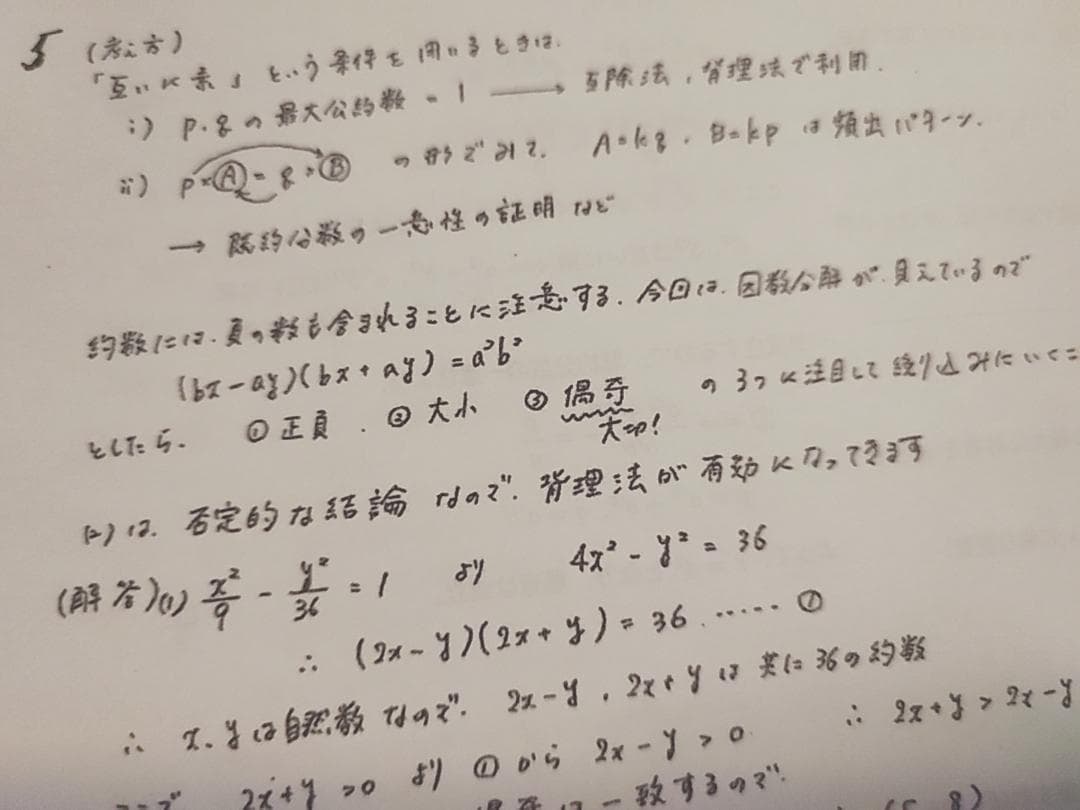 5 (考え方)
「互いに素」という条件を用いるときは.
i) p.qの最大公約数=1 → 互除法,背理法で利用.
ii) p×A=q×B の形でみて. A=kq, B=kpは頻出パターン.
→ 既約分数の一意性の証明など
約数には.負の数も含まれることに注意する.今回は.因数分解が.見えているので
(bx-ay)(bx+ay)=a²b²
としたら. ①正負. ②大小 ③偶奇 の3つに注目して絞り込みにいく
大切!
(2)は.否定的な結論なので.背理法が有効になってきます
(解答)(1) x²/9 - y²/36 = 1 より 4x²-y²=36
∴ (2x-y)(2x+y)=36 …… ①
∴ x.yは自然数なので. 2x-y, 2x+yは共に36の約数
2x+y>0 より ①から 2x-y>0 ∴ 2x+y>2x-y
一致するので.